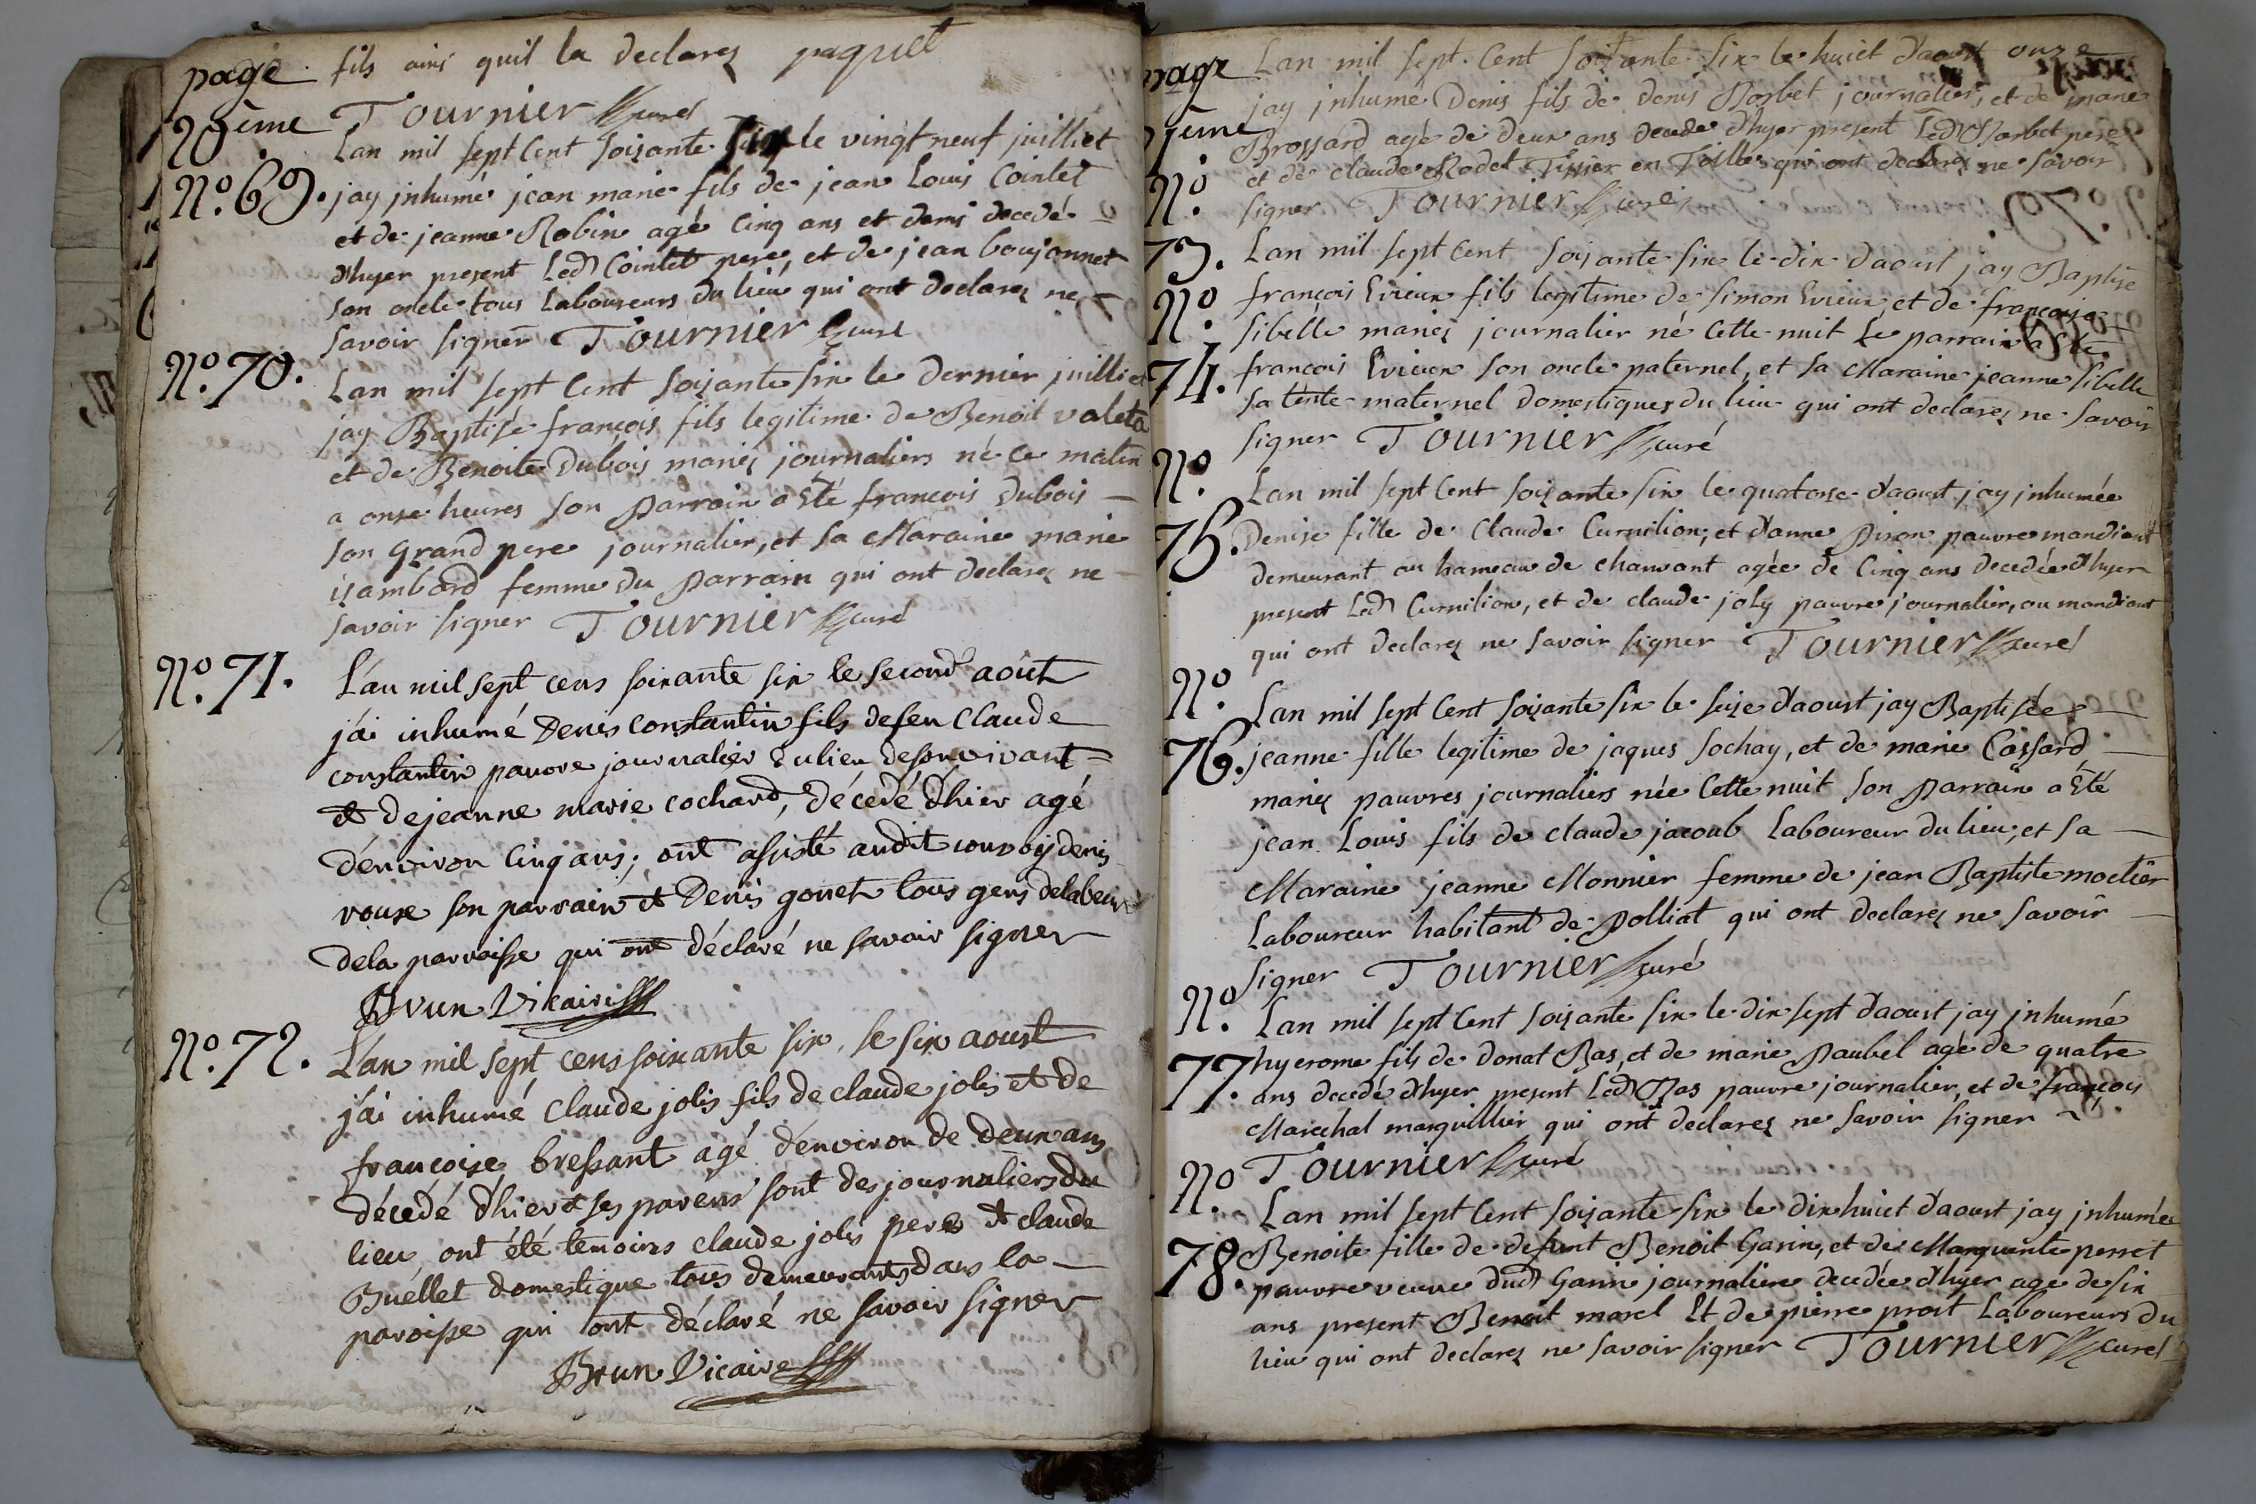 page
20eme
fils ainsi quil la declarez paquet
Tournier curé
No. 69.
Lan mil sept Cent soixante six le vingt neuf juilliet
jay jnhumé jean marie fils de jean Louis Cointet
et de jeanne Robin agé Cinq ans et demi decedé
d'hyer present Led Cointet pere, et de jean boujonnet
son oncle tous Laboureurs du lieu qui ont declarez ne
savoir signer Tournier curé
No. 70.
Lan mil sept Cent soixante six le dernier juilliet
jay Baptisé françois fils legitime de Benoit valeta
et de Benoite Dubois mariez journaliers né ce matin
a onze heures son Parrain a Eté francois Dubois
son grand pere journalier, et sa Maraine marie
isambard femme du Parrain qui ont declarez ne
savoir signer Tournier curé
No. 71.
L'an mil sept cens soixante six le second aout
j'ai inhumé Denis constantin fils de feu Claude
constantin pauvre journalier du lieu de son vivant
et de jeanne marie cochard, décédé d'hier agé
d'environ Cinq ans; ont assisté audit convoij denis
rouse son parrain et Denis gonet tous gens de labeur
de la parroisse qui ont déclaré ne savoir signer
Brun Vicaire
No. 72.
L'an mil sept cens soixante six, le six aoust
j'ai inhumé Claude jolis fils de claude jolis et de
françoise bressant agé d'environ de deux ans
décédé d'hier et ses parens sont des journaliers du
lieu, ont été temoins claude jolis pere et claude
Buéllet domestique tous demeurants dans la
paroisse qui ont déclaré ne savoir signer
Brun Vicaire
page
No
73.
Lan mil sept Cent soixante six le huict d'aoust onze
jay jnhumé Denis fils de denis Morbet journalier, et de marie
Brossard agé de deux ans decedé d'hyer present Led Morbet pere
et de claude Rodet Tissier en Toille qui ont declarez ne savoir
signer Tournier curé
No.
74.
Lan mil sept Cent soixante six le dix d'aoust jay Baptisé
françois Evieux fils legitime de simon Evieux, et de françoise
sibelle mariez journalier né Cette nuit Le parrain a Eté
francois Evieux son oncle paternel, et sa Maraine jeanne sibelle
sa tente maternel domestiques du lieu qui ont declarez ne savoir
signer Tournier curé
No.
75.
Lan mil sept Cent soixante six le quatorze d'aoust jay jnhumée
Denise fille de Claude Curnilion, et d'anne Piron pauvre mandiant
demeurant au hameau de chanvant agée de Cinq ans decedée d'hyer
present Led Curnilion, et de claude joly pauvre journalier, ou mandiant
qui ont declarez ne savoir signer Tournier curé
No.
76.
Lan mil sept Cent soixante six le seize d'aoust jay Baptisée
jeanne fille legitime de jaques sochay, et de marie Cassard
mariez pauvres journaliers née Cette nuit son Parrain a Eté
jean Louis fils de claude jacoub Laboureur du lieu, et sa
Maraine jeanne Monnier femme de jean Baptiste moctier
Laboureur habitant de Polliat qui ont declarez ne savoir
signer Tournier curé
No.
77.
Lan mil sept Cent soixante six le dix sept d'aoust jay jnhumé
hyerome fils de donat Ras, et de marie Paubel agé de quatre
ans decedé d'hyer present Led Ras pauvre journalier, et de françois
Marechal marguillier qui ont declarez ne savoir signer
Tournier curé
No.
78.
Lan mil sept Cent soixante six le dix huict d'aoust jay jnhumée
Benoite fille de defunt Benoit Garin, et de Marguerite perret
pauvre veuve dud Garin journaliere decedée d'hyer age de six
ans present Benoit morel Et de pierre prost Laboureurs du
lieu qui ont declarez ne savoir signer Tournier curé